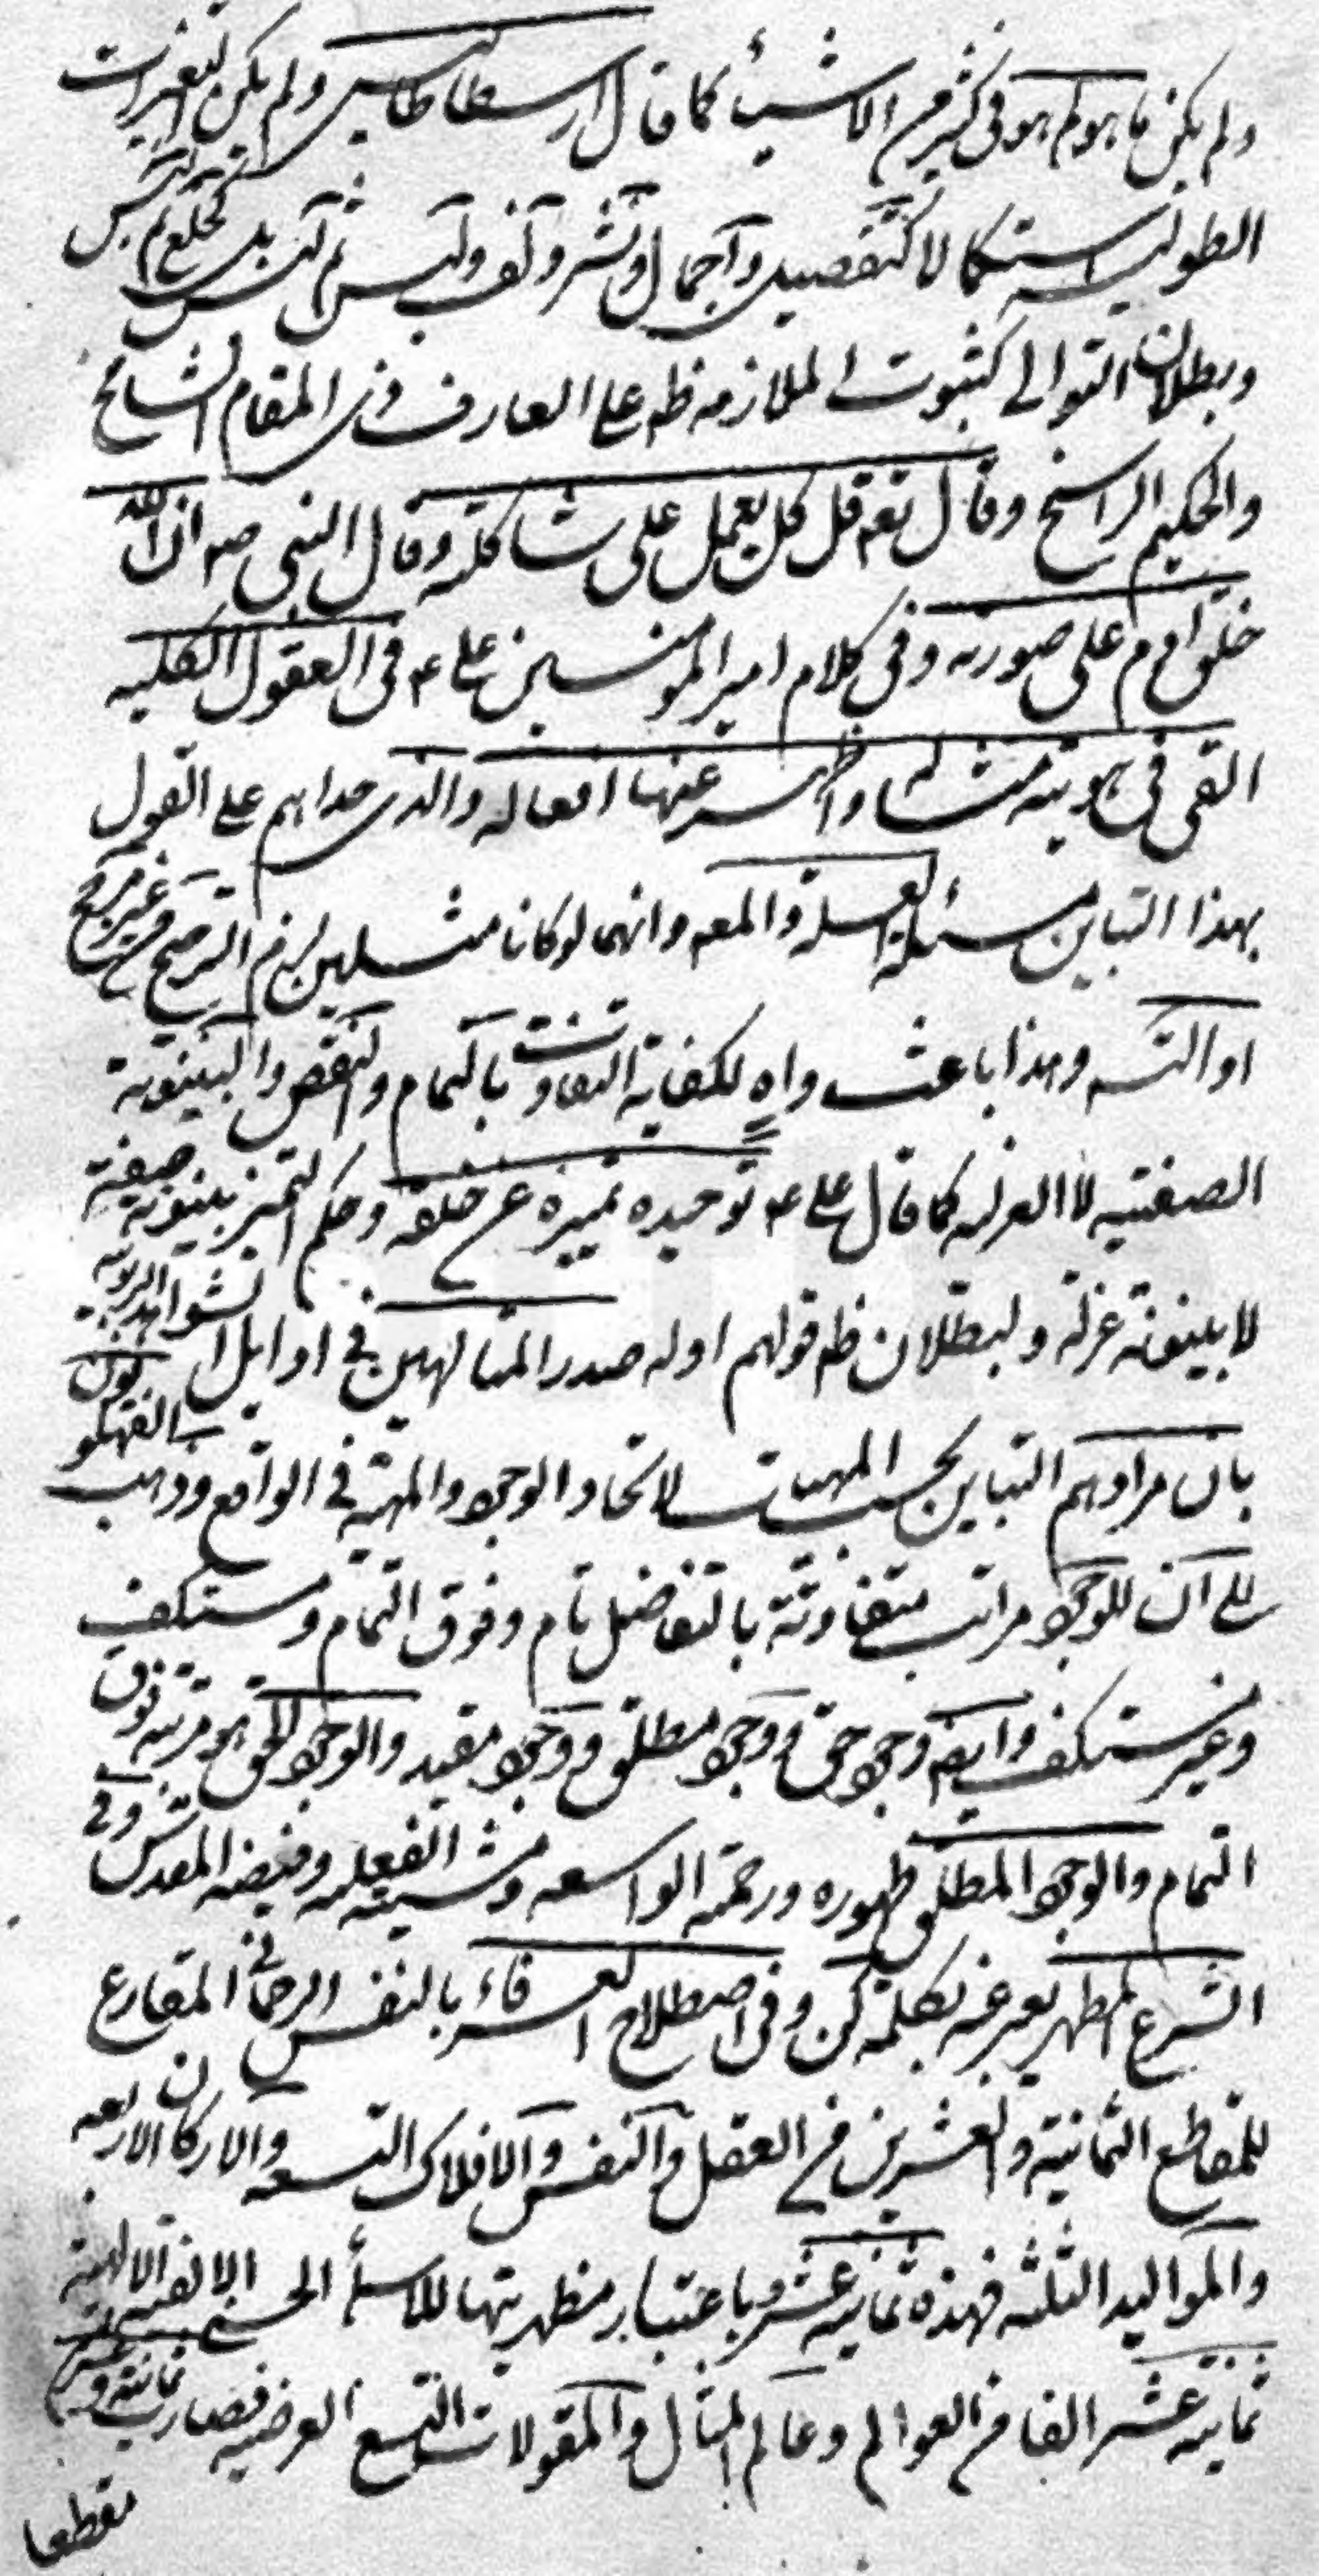 ولم يكن ما هو لم هو فى كثير من الاشياء كما قال ارسطاطاليس ولم يكن التغيرات
الطولية استكمالا كتفصيل واجمال ونشر ولف ولبس ثم لبس بل كخلع ثم لبس
وبطلان التوالى كثبوت الملازمه ظه على العارف ذى المقام الشامخ
والحكيم الراسخ وقال تعه قل كل يعمل على شاكلته وقال النبى صه ان الله
خلق ادم على صورته وفى كلام امير المومنين على ع فى العقول الكليه
القى فى هويته مثاله واظهر عنها افعاله والذى حداهم على القول
بهذا التباين مسئلة العله والمعه وانهما لو كانا مثلين لزم الترجيح من غير مرجح
او التسه وهذا باعث واهٍ لكفاية التفاوت بالتمام والنقص والبينونة
الصفتيه لا العزله كما قال على ع توحيده تميزه عن خلقه وحكم التميز بينونة صفة
لا بينونة عزلة ولبطلان ظه قولهم اوله صدر المتالهين فى اوايل الشواهد الربوبيه
بان مرادهم التباين بحسب المهيات لاتحاد الوجود والمهية فى الواقع وذهب الفهلويون
الى ان للوجود مراتب متفاوتة بالتفاضل تام وفوق التمام ومستكف
وغير مستكف وايضه وجود حق ووجود مطلق ووجود مقيد والوجود الحق هو مرتبه فوق
التمام والوجود المطلق ظهوره ورحمته الواسعه ومشيته الفعليه وفيضه المقدس وفى
الشرع المطهر يعبر عنه بكلمة كن وفى اصطلاح العرفاء بالنفس الرحمانى المقارع
للمقاطع الثمانية والعشرين من العقل والنفس والافلاك التسعه والاركان الاربعه
والمواليد الثلثه فهذه ثمانيه عشر وباعتبار مظهريتها للاسماء الحسنى الالفية الالهية
ثمانيه عشر الفا من العوالم وعالم المثال والمقولات التسع العرضيه فصارت ثمانية وعشرين
مقطعا